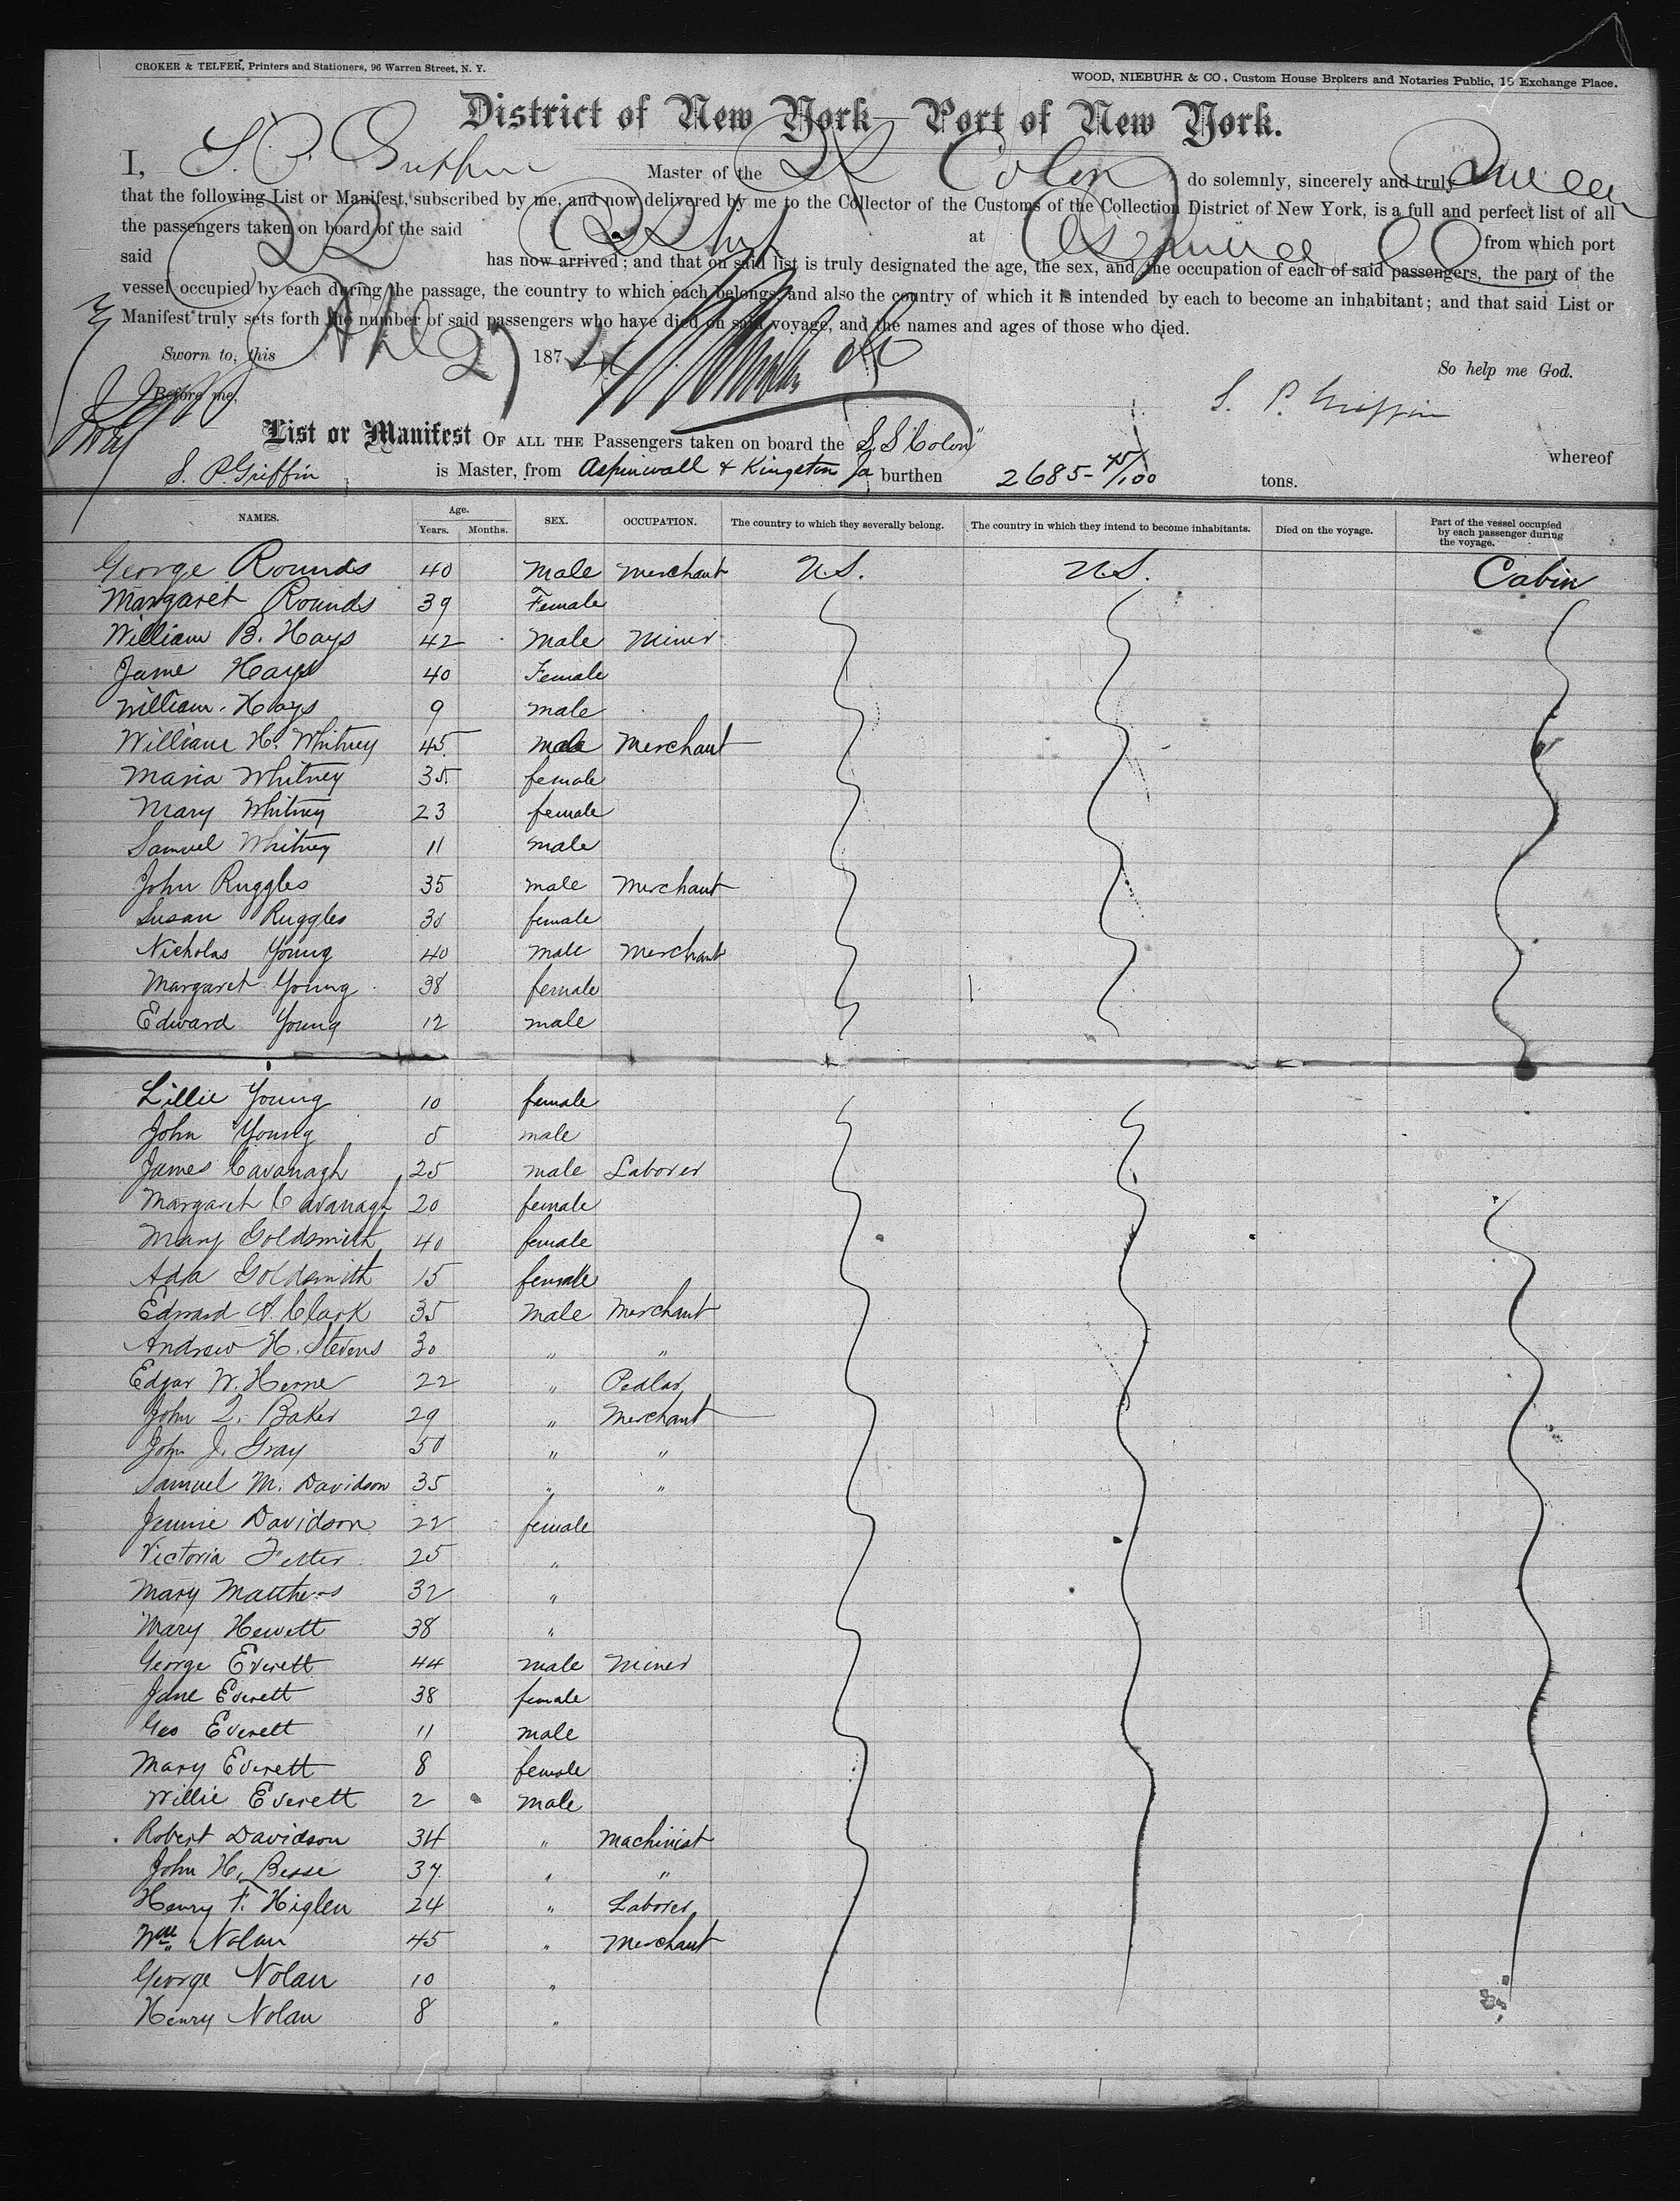 CROKER & TELFER, Printers and Stationers, 96 Warren Street, N. Y.
WOOD, NIEBUHR & CO., Custom House Brokers and Notaries Public, 15 Exchange Place.
District of New York—Port of New York.
I, S. P. Griffin Master of the SS Colon do solemnly, sincerely and truly swear
that the following List or Manifest, subscribed by me, and now delivered by me to the Collector of the Customs of the Collection District of New York, is a full and perfect list of all
the passengers taken on board of the said Ship at Aspinwall from which port
said SS has now arrived; and that on said list is truly designated the age, the sex, and the occupation of each of said passengers, the part of the
vessel occupied by each during the passage, the country to which each belongs, and also the country of which it is intended by each to become an inhabitant; and that said List or
Manifest truly sets forth the number of said passengers who have died on said voyage, and the names and ages of those who died.
Sworn to, this 27 1874 So help me God.
Before me, S. P. Griffin
List or Manifest OF ALL THE Passengers taken on board the S.S "Colon" whereof
S. P. Griffin is Master, from Aspinwall & Kingston Ja burthen 2685-45/100 tons.
NAMES. Age. Years. Months. SEX. OCCUPATION. The country to which they severally belong. The country in which they intend to become inhabitants. Died on the voyage. Part of the vessel occupied by each passenger during the voyage.
George Rounds 40 Male Merchant U.S. U.S. Cabin
Margaret Rounds 39 Female
William B. Hays 42 Male Miner
Jame Hays 40 Female
William Hays 9 male
William H. Whitney 45 male Merchant
Maria Whitney 35 female
Mary Whitney 23 female
Samuel Whitney 11 male
John Ruggles 35 male Merchant
Susan Ruggles 30 female
Nicholas Young 40 male Merchant
Margaret Young 38 female
Edward Young 12 male
Lillie Young 10 female
John Young 5 male
James Cavanagh 25 male Laborer
Margaret Cavanagh 20 female
Mary Goldsmith 40 female
Ada Goldsmith 15 female
Edward A. Clark 35 male Merchant
Andrew H. Stevens 30 " "
Edgar W. Herne 22 " Pedlar
John Q. Baker 29 " Merchant
John J. Gray 50 " "
Samuel M. Davidson 35 " "
Jennie Davidson 22 female
Victoria Fetter 25 "
Mary Matthews 32 "
Mary Hewett 38 "
George Everett 44 male Miner
Jane Everett 38 female
Geo Everett 11 male
Mary Everett 8 female
Willie Everett 2 male
Robert Davidson 34 " Machinist
John H. Besse 37 " "
Henry F. Higlen 24 " Laborer
Wm Nolan 45 " Merchant
George Nolan 10 "
Henry Nolan 8 "